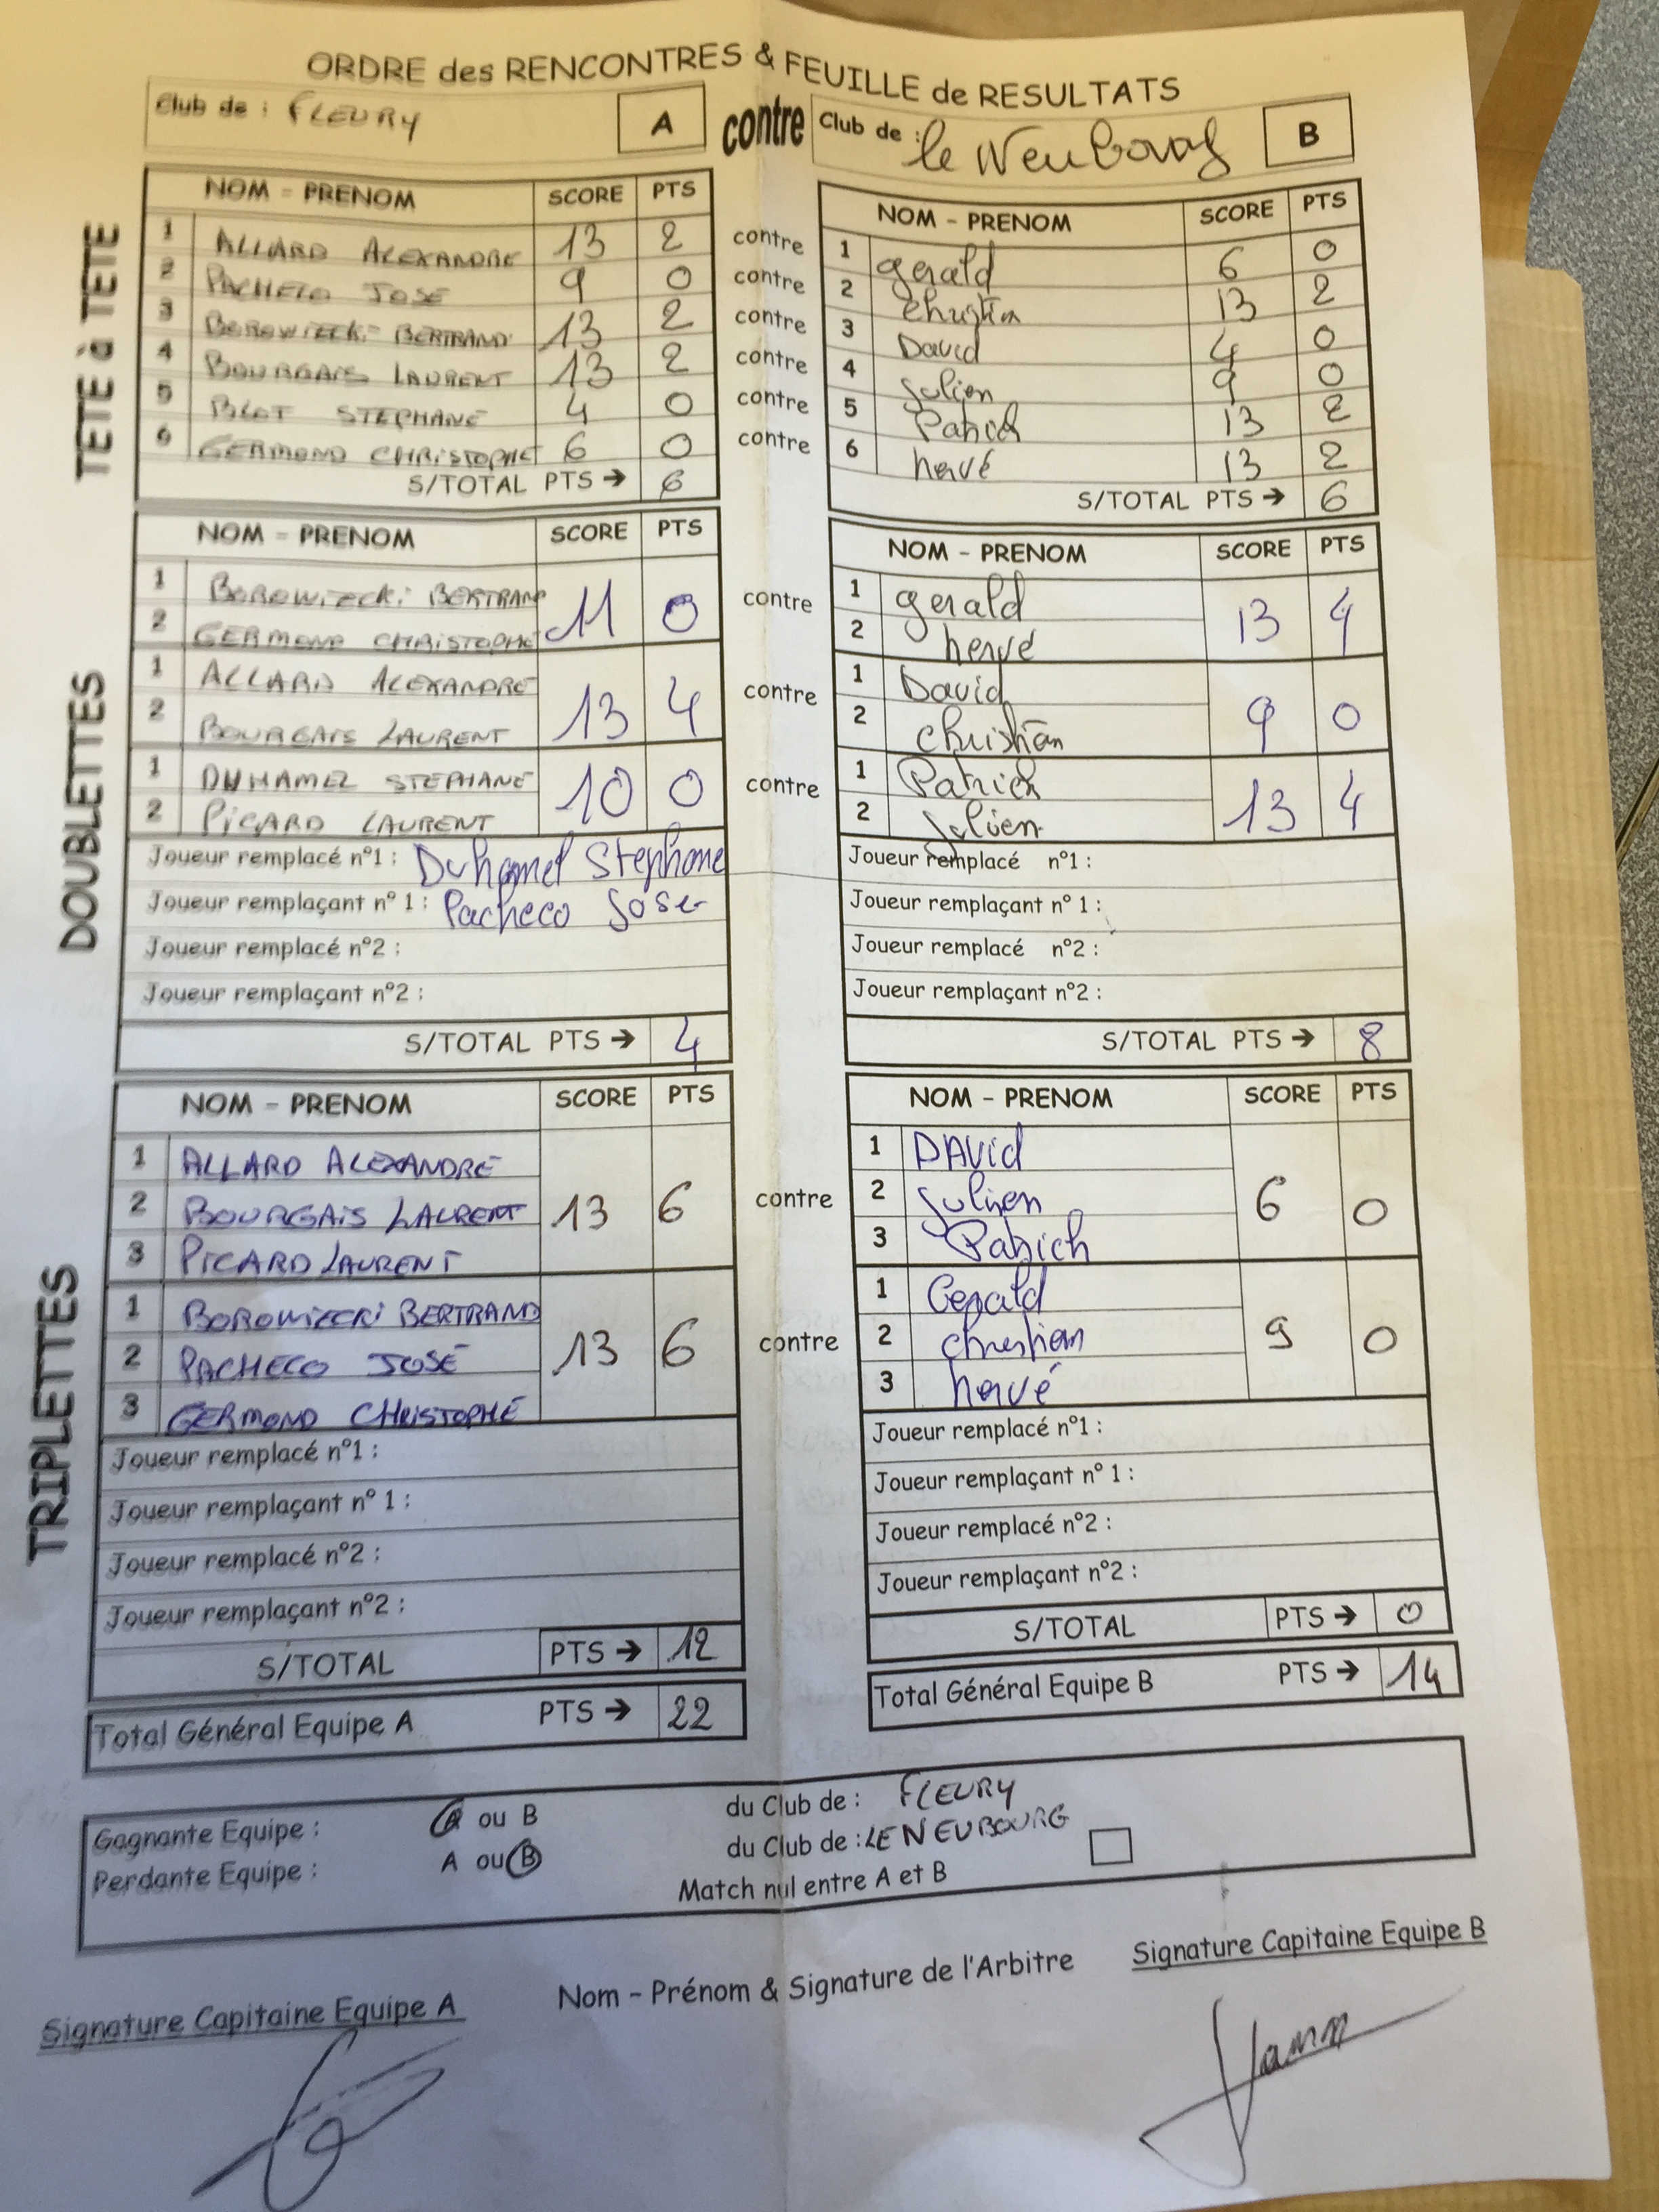 ORDRE des RENCONTRES & FEUILLE de RESULTATS
Club de : FLEURY A contre Club de : le Neubourg B
TETE à TETE
NOM - PRENOM SCORE PTS NOM - PRENOM SCORE PTS
1 ALLARD ALEXANDRE 13 2 contre 1 gerald 6 0
2 PACHECO JOSE 9 0 contre 2 christian 13 2
3 BOROWIECKI BERTRAND 13 2 contre 3 David 4 0
4 BOURGAIS LAURENT 13 2 contre 4 Julien 9 0
5 BLOT STEPHANE 4 0 contre 5 Patrick 13 2
6 GERMOND CHRISTOPHE 6 0 contre 6 hervé 13 2
S/TOTAL PTS → 6 S/TOTAL PTS → 6
DOUBLETTES
NOM - PRENOM SCORE PTS NOM - PRENOM SCORE PTS
1 BOROWIECKI BERTRAND 11 0 contre 1 gerald 13 4
2 GERMOND CHRISTOPHE 2 hervé
1 ALLARD ALEXANDRE 13 4 contre 1 David 9 0
2 BOURGAIS LAURENT 2 christian
1 DUHAMEL STEPHANE 10 0 contre 1 Patrick 13 4
2 PICARD LAURENT 2 Julien
Joueur remplacé n°1 : Duhamel Stephane Joueur remplacé n°1 :
Joueur remplaçant n° 1 : Pacheco Jose Joueur remplaçant n° 1 :
Joueur remplacé n°2 : Joueur remplacé n°2 :
Joueur remplaçant n°2 : Joueur remplaçant n°2 :
S/TOTAL PTS → 4 S/TOTAL PTS → 8
TRIPLETTES
NOM - PRENOM SCORE PTS NOM - PRENOM SCORE PTS
1 ALLARD ALEXANDRE 1 DAVid
2 BOURGAIS LAURENT 13 6 contre 2 Julien 6 0
3 PICARD LAURENT 3 Patrick
1 BOROWIECKI BERTRAND 1 Gerald
2 PACHECO JOSÉ 13 6 contre 2 christian 9 0
3 GERMOND CHRISTOPHE 3 hervé
Joueur remplacé n°1 : Joueur remplacé n°1 :
Joueur remplaçant n° 1 : Joueur remplaçant n° 1 :
Joueur remplacé n°2 : Joueur remplacé n°2 :
Joueur remplaçant n°2 : Joueur remplaçant n°2 :
S/TOTAL PTS → 12 S/TOTAL PTS → 0
Total Général Equipe A PTS → 22 Total Général Equipe B PTS → 14
Gagnante Equipe : A ou B du Club de : FLEURY
Perdante Equipe : A ou B du Club de : LE NEUBOURG
Match nul entre A et B
Signature Capitaine Equipe A Nom - Prénom & Signature de l'Arbitre Signature Capitaine Equipe B